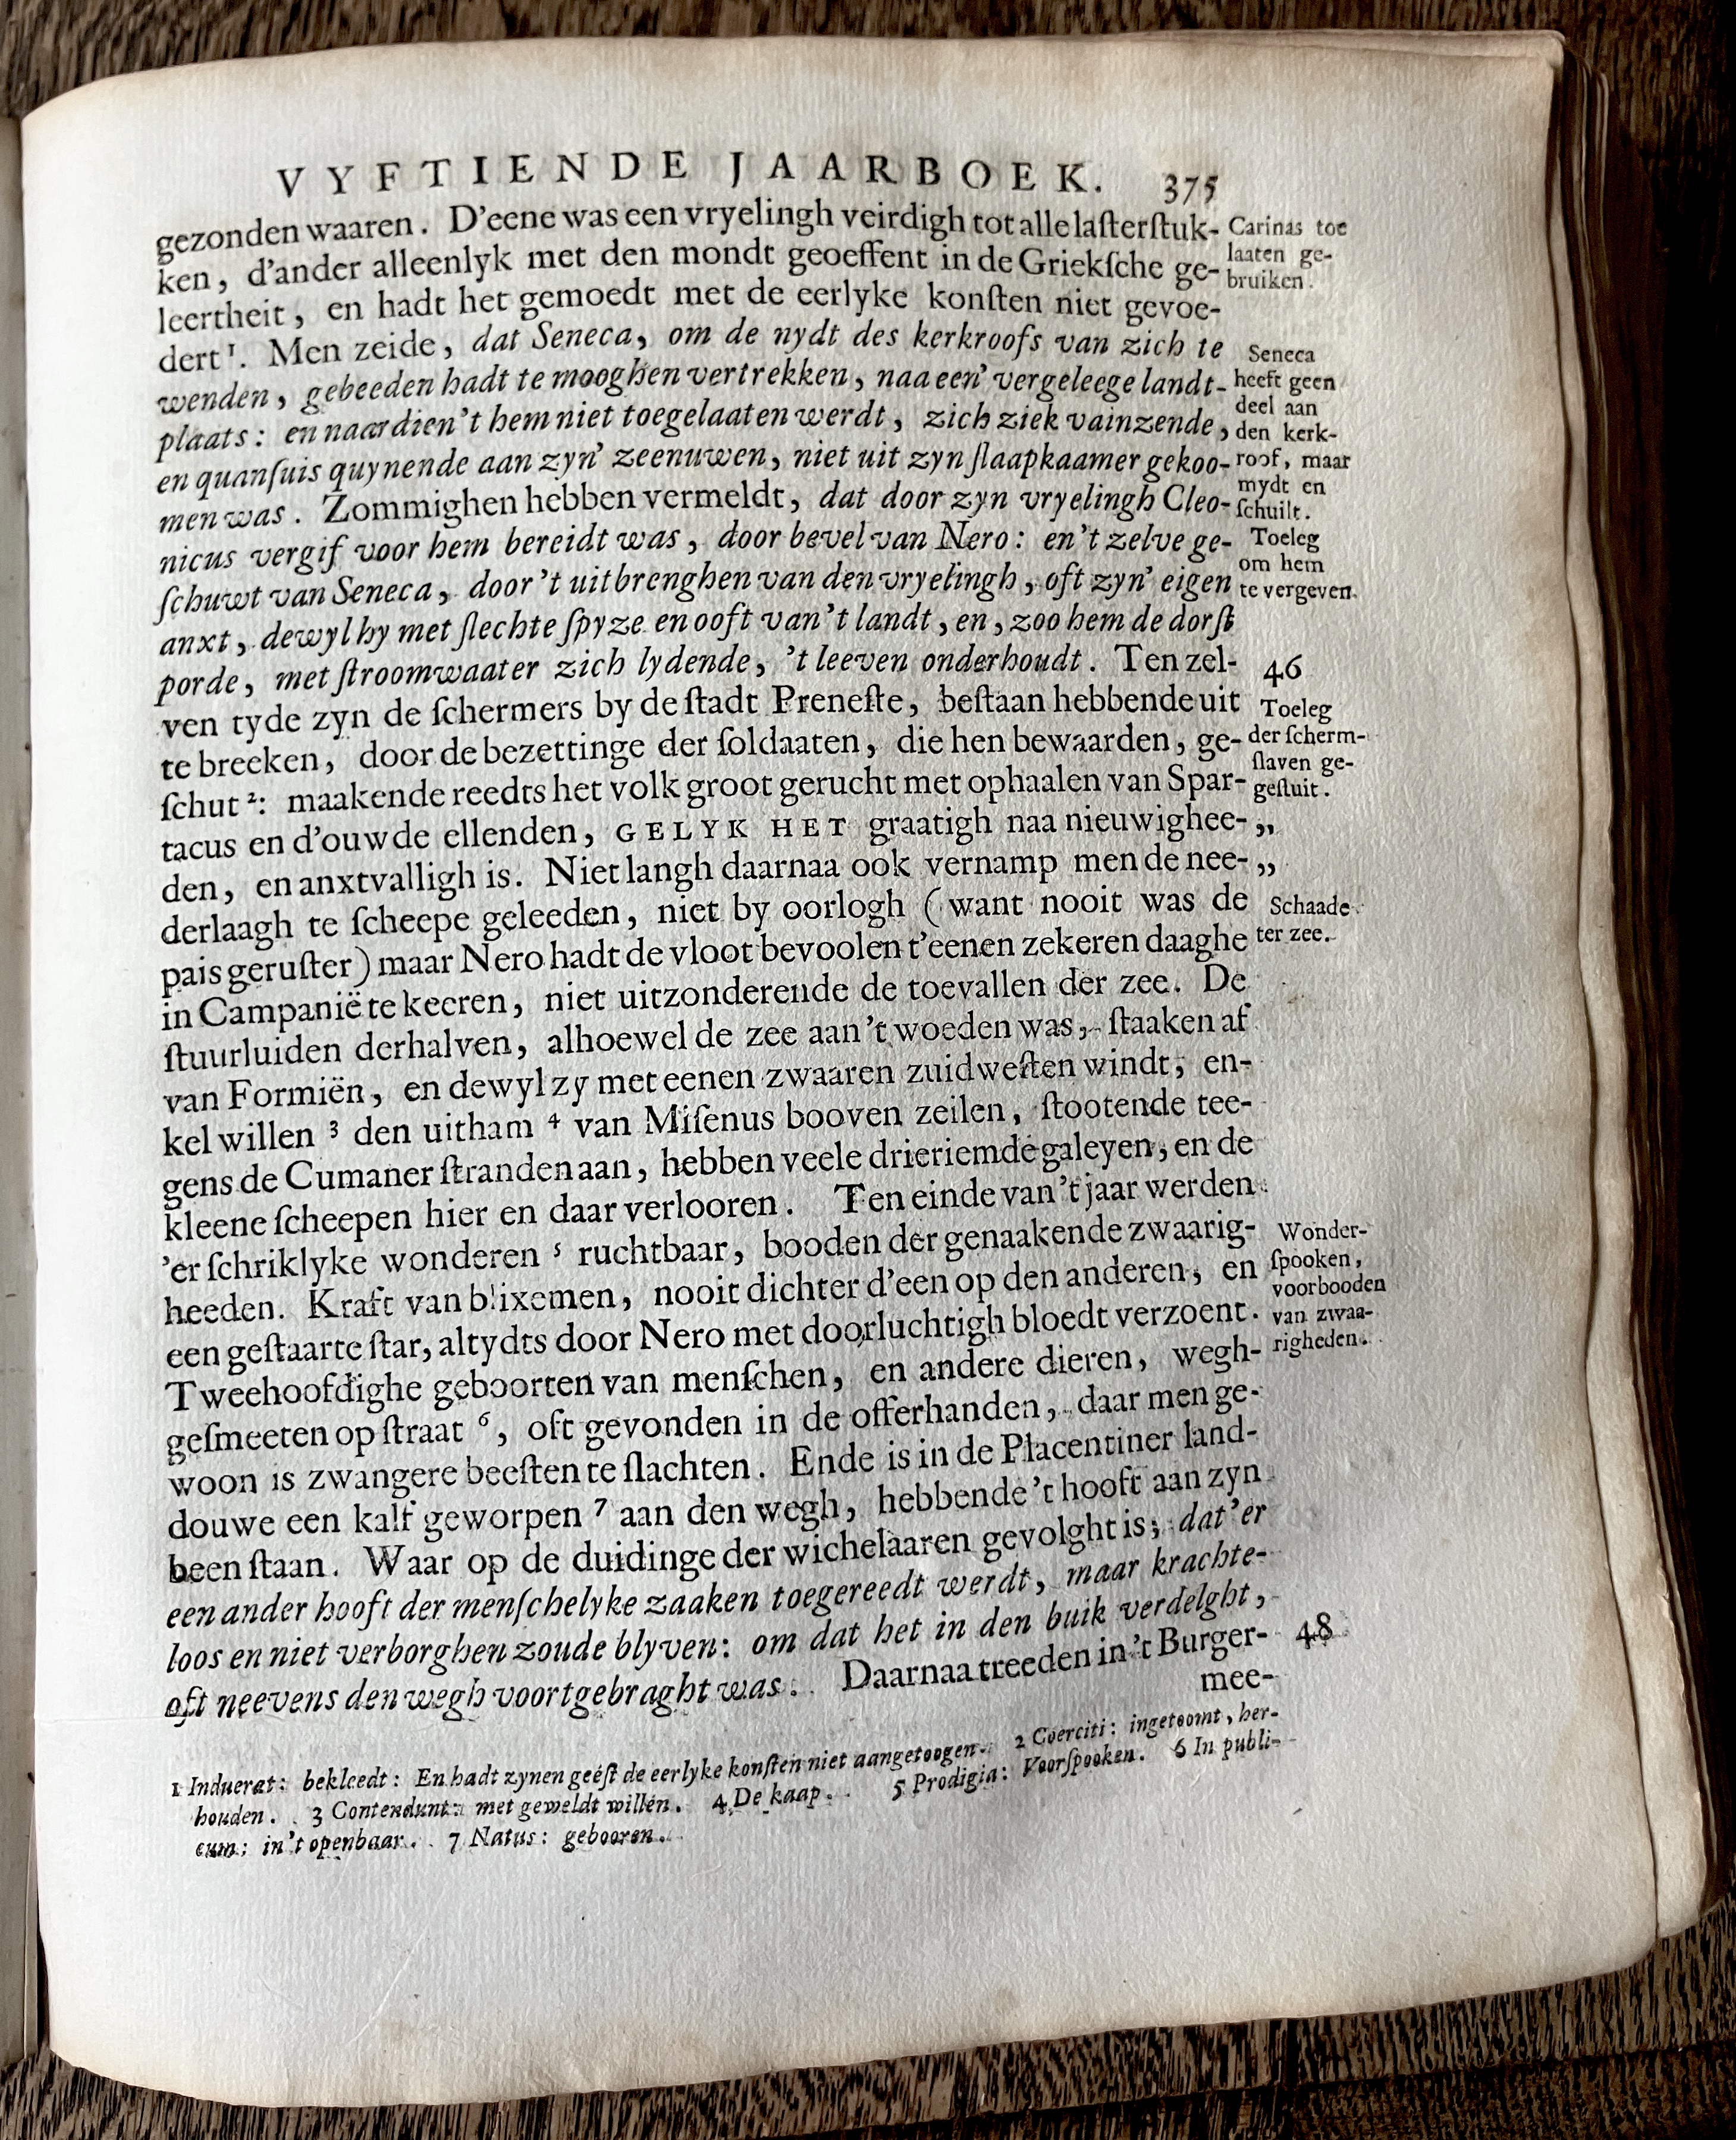 VYFTIENDE JAARBOEK. 375
gezonden waaren. D'eene was een vryelingh veirdigh tot alle laſterſtuk-
ken, d'ander alleenlyk met den mondt geoeffent in de Griekſche ge-
leertheit, en hadt het gemoedt met de eerlyke konſten niet gevoe-
dert ¹. Men zeide, dat Seneca, om de nydt des kerkroofs van zich te
wenden, gebeeden hadt te mooghen vertrekken, naa een' vergeleege landt-
plaats: en naardien't hem niet toegelaaten werdt, zich ziek vainzende,
en quanſuis quynende aan zyn' zeenuwen, niet uit zyn ſlaapkaamer gekoo-
men was. Zommighen hebben vermeldt, dat door zyn vryelingh Cleo-
nicus vergif voor hem bereidt was, door bevel van Nero: en't zelve ge-
ſchuwt van Seneca, door't uitbrenghen van den vryelingh, oft zyn' eigen
anxt, dewyl hy met ſlechte ſpyze en ooft van't landt, en, zoo hem de dorſt
porde, met ſtroomwaater zich lydende, 't leeven onderhoudt. Ten zel-
ven tyde zyn de ſchermers by de ſtadt Preneſte, beſtaan hebbende uit
te breeken, door de bezettinge der ſoldaaten, die hen bewaarden, ge-
ſchut ²: maakende reedts het volk groot gerucht met ophaalen van Spar-
tacus en d'ouwde ellenden, GELYK HET graatigh naa nieuwighee-
den, en anxtvalligh is. Niet langh daarnaa ook vernamp men de nee-
derlaagh te ſcheepe geleeden, niet by oorlogh (want nooit was de
pais geruſter) maar Nero hadt de vloot bevoolen t'eenen zekeren daaghe
in Campanië te keeren, niet uitzonderende de toevallen der zee. De
ſtuurluiden derhalven, alhoewel de zee aan't woeden was, ſtaaken af
van Formiën, en dewyl zy met eenen zwaaren zuidweſten windt, en-
kel willen ³ den uitham ⁴ van Miſenus booven zeilen, ſtootende tee-
gens de Cumaner ſtranden aan, hebben veele drieriemde galeyen, en de
kleene ſcheepen hier en daar verlooren. Ten einde van't jaar werden
'er ſchriklyke wonderen ⁵ ruchtbaar, booden der genaakende zwaarig-
heeden. Kraft van blixemen, nooit dichter d'een op den anderen, en
een geſtaarte ſtar, altydts door Nero met doorluchtigh bloedt verzoent.
Tweehoofdighe geboorten van menſchen, en andere dieren, wegh-
geſmeeten op ſtraat ⁶, oft gevonden in de offerhanden, daar men ge-
woon is zwangere beeſten te ſlachten. Ende is in de Placentiner land-
douwe een kalf geworpen ⁷ aan den wegh, hebbende't hooft aan zyn
been ſtaan. Waar op de duidinge der wichelaaren gevolght is; dat'er
een ander hooft der menſchelyke zaaken toegereedt werdt, maar krachte-
loos en niet verborghen zoude blyven: om dat het in den buik verdelght,
oft neevens den wegh voortgebraght was. Daarnaa treeden in't Burger-
mee-
Carinas toe
laaten ge-
bruiken.
Seneca
heeft geen
deel aan
den kerk-
roof, maar
mydt en
ſchuilt.
Toeleg
om hem
te vergeven.
46
Toeleg
der ſcherm-
ſlaven ge-
geſtuit.
„
„
Schaade
ter zee.
Wonder-
ſpooken,
voorbooden
van zwaa-
righeden.
48
1 Induerat: bekleedt: En hadt zynen geéſt de eerlyke konſten niet aangetoogen. 2 Coerciti: ingetoomt, her-
houden. 3 Contendunt: met geweldt willen. 4 De kaap. 5 Prodigia: Voorſpooken. 6 In publi-
cum: in't openbaar. 7 Natus: gebooren.